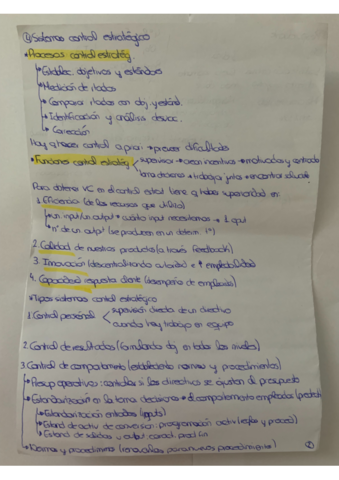 ③ Sistemas control estratégico
* Procesos control estratég
* Establec. objetivos y estándares
* Medición de rtados
* Comparar rtados con obj. y estánd.
* Identificación y análisis desviac.
* Corrección
Hay q hacer control a priori → prever dificultades
* Funciones control estratég
supervisar → crean incentivos → motivados y centrados
toma decisiones → trabaja junta → encontrar
Para obtener VC en el control estrat tiene q haber superioridad en
1. Eficiencia (de los recursos que utiliza)
un input/un output → cuánto input necesitamos → 1 output
nº de un output (se producen en un determ. tº)
2. Calidad de nuestros productos (a través feedback)
3. Innovación (descentralizando autoridad) e ↑ empleabilidad
4. Capacidad respuesta cliente (desempeño de empleados)
* Tipos sistemas control estratégico
1. Control personal
supervisión directa de un directivo
cuando hay trabajo en equipo
2. Control de resultados (formulando obj en todos los niveles)
3. Control de comportamiento (establecido normas y procedimientos)
* Presup operativos: controlas si los directivos se ajustan al presupuesto
* Estandarización en la toma decisiones → el comportamiento empleados
* Estandarización entradas (inputs)
* Estand de activ de conversión: programación activ (reglas y proced)
* Estand de salidas u output: caract. prod fin
* Normas y procedimientos (renovarlas para nuevos procedimientos)